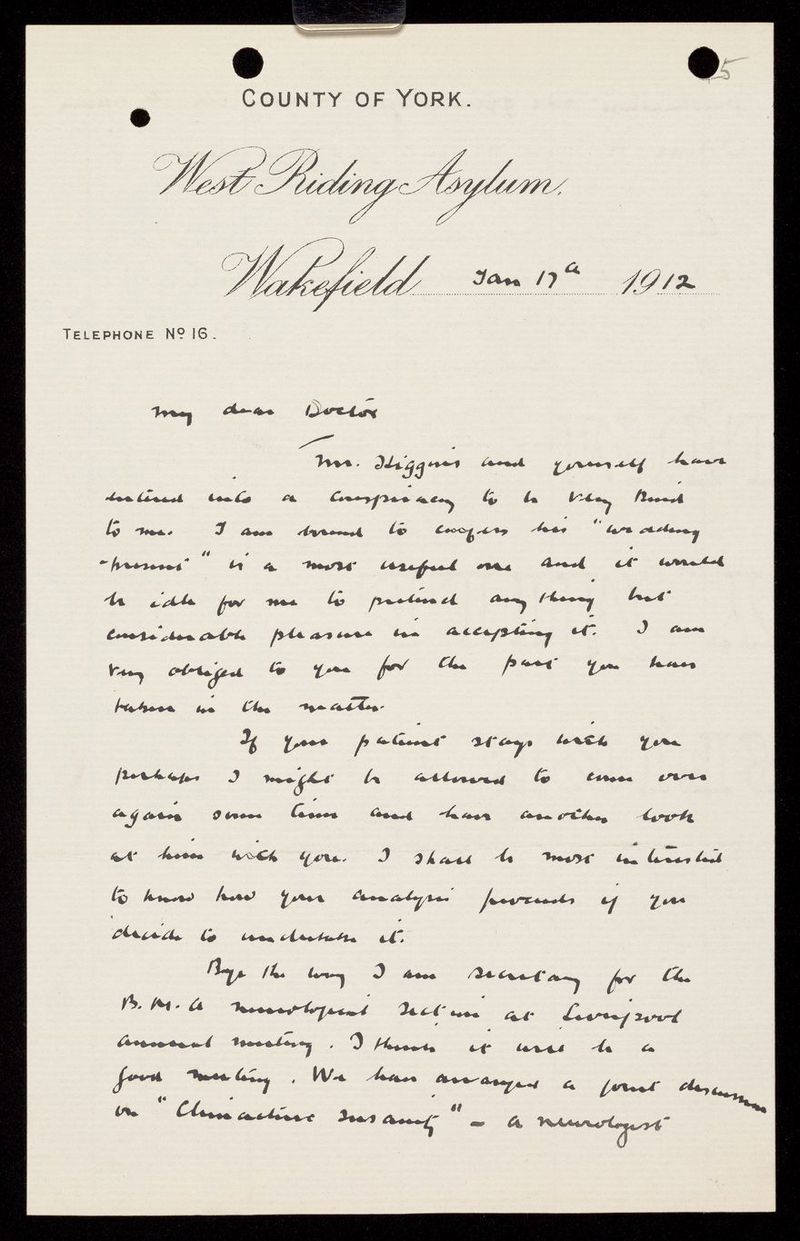 5
COUNTY OF YORK.
West Riding Asylum,
Wakefield Jan 17th 1912
TELEPHONE Nº 16.
My dear Doctor
Mr. Higgins and yourself have
entered into a conspiracy to be very kind
to me. I am bound to confess his "wedding
-present" is a most useful one and it would
be idle for me to pretend anything but
considerable pleasure in accepting it. I am
very obliged to you for the part you have
taken in the matter.
If your patient stays with you
perhaps I might be allowed to come over
again some time and have another look
at him with you. I shall be most interested
to know how your analysis proceeds if you
decide to undertake it.
Bye the way I am secretary for the
B.M.A neurological section at Liverpool
annual meeting. I think it will be a
good meeting. We have arranged a joint discussion
on "Climacteric Insanity" - a neurologist